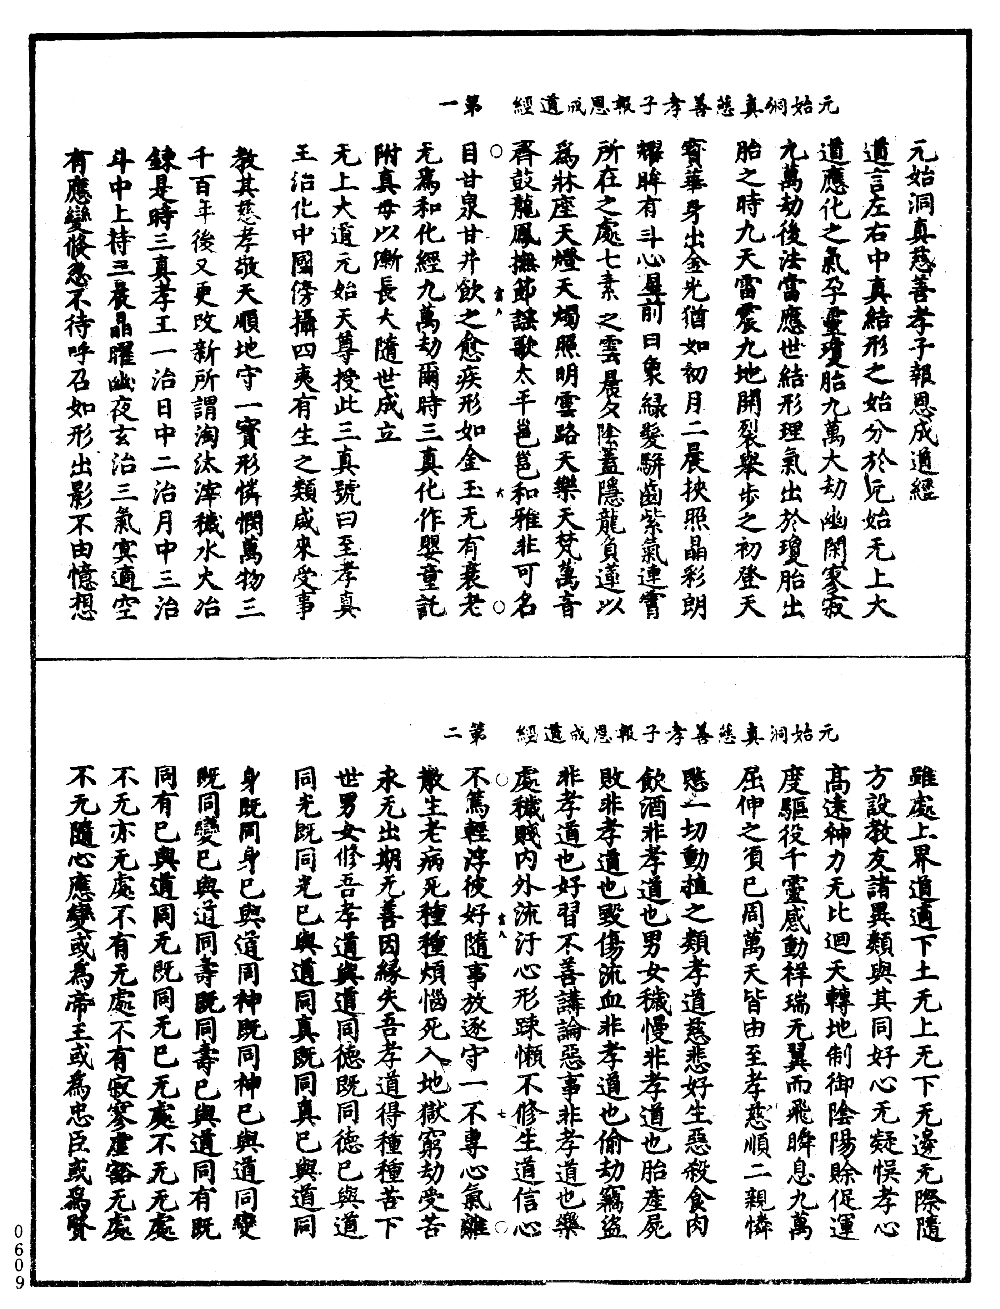 元始洞真慈善孝子報恩成道經　第一
元始洞真慈善孝子報恩成道經
道言左右中真結形之始分於元始无上大
道應化之氣孕靈瓊胎九萬大劫幽閑寥寂
九萬劫後法當應世結形理氣出於瓊胎出
胎之時九天雷震九地開裂舉步之初登天
寶華身出金光猶如初月二晨挾照晶彩朗
耀眸有斗心星前曰象綠髮駢齒紫氣連霄
所在之處七素之雲晨夕陰蓋隱龍負蓮以
為牀座天燈天燭照明雲路天樂天梵萬音
齊鼓龍鳳撫節謠歌太平邕邕和雅非可名
目甘泉甘井飲之愈疾形如金玉无有衰老
无為和化經九萬劫爾時三真化作嬰童託
附真母以漸長大隨世成立
无上大道元始天尊授此三真號曰至孝真
王治化中國傍攝四夷有生之類咸來受事
教其慈孝敬天順地守一寶形憐憫萬物三
千百年後又更改新所謂淘汰滓穢水火冶
鍊是時三真孝王一治日中二治月中三治
斗中上持三晨晶曜幽夜玄治三氣冥通空
有應變倏忽不待呼召如形出影不由憶想
元始洞真慈善孝子報恩成道經　第二
雖處上界道適下土无上无下无邊无際隨
方設教友諸異類與其同好心无疑悮孝心
高遠神力无比迴天轉地制御陰陽賒促運
度驅役千靈感動祥瑞无翼而飛瞬息九萬
屈伸之須已周萬天皆由至孝慈順二親憐
愍一切動植之類孝道慈悲好生惡殺食肉
飲酒非孝道也男女穢慢非孝道也胎產屍
敗非孝道也毀傷流血非孝道也偷劫竊盜
非孝道也好習不善講論惡事非孝道也樂
處穢賤內外流汙心形踈懶不修生道信心
不篤輕浮彼好隨事放逐守一不專心氣離
散生老病死種種煩惱死入地獄窮劫受苦
永无出期无善因緣失吾孝道得種種苦下
世男女修吾孝道與道同德既同德已與道
同光既同光已與道同真既同真已與道同
身既同身已與道同神既同神已與道同變
既同變已與道同壽既同壽已與道同有既
同有已與道同无既同无已无處不无无處
不无亦无處不有无處不有寂寥虛豁无處
不无隨心應變或為帝王或為忠臣或為賢
0609